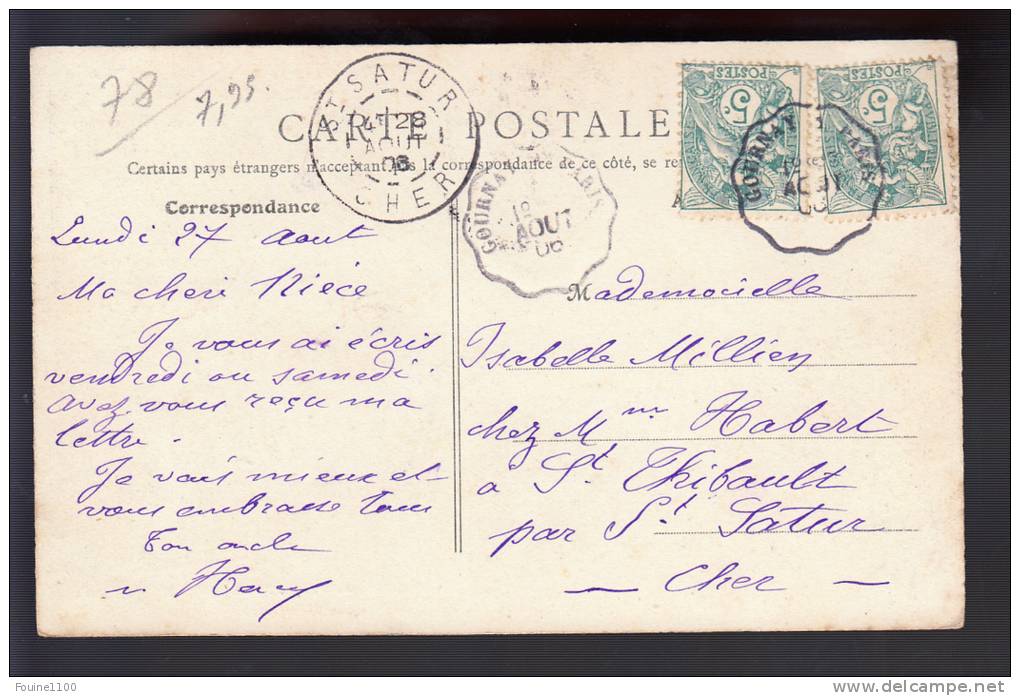 78
7,95.
ST SATUR
28
AOUT
06
CHER
CARTE POSTALE
Certains pays étrangers n'acceptant pas la correspondance de ce côté, se
Correspondance
Lundi 27 Aout
Ma chere Niéce
Je vous ai écris
vendredi ou samedi.
avez vous reçu ma
lettre.
Je vais mieux et
vous embrasse tous
Ton oncle
POSTES
5c
POSTES
5c
GOURNAY PARIS
AOUT
06
GOURNAY PARIS
Mademoiselle
Isabelle Millien
chez Mme Habert
a St Thibault
par St Satur
— Cher —
Founine1100
www.delcampe.net